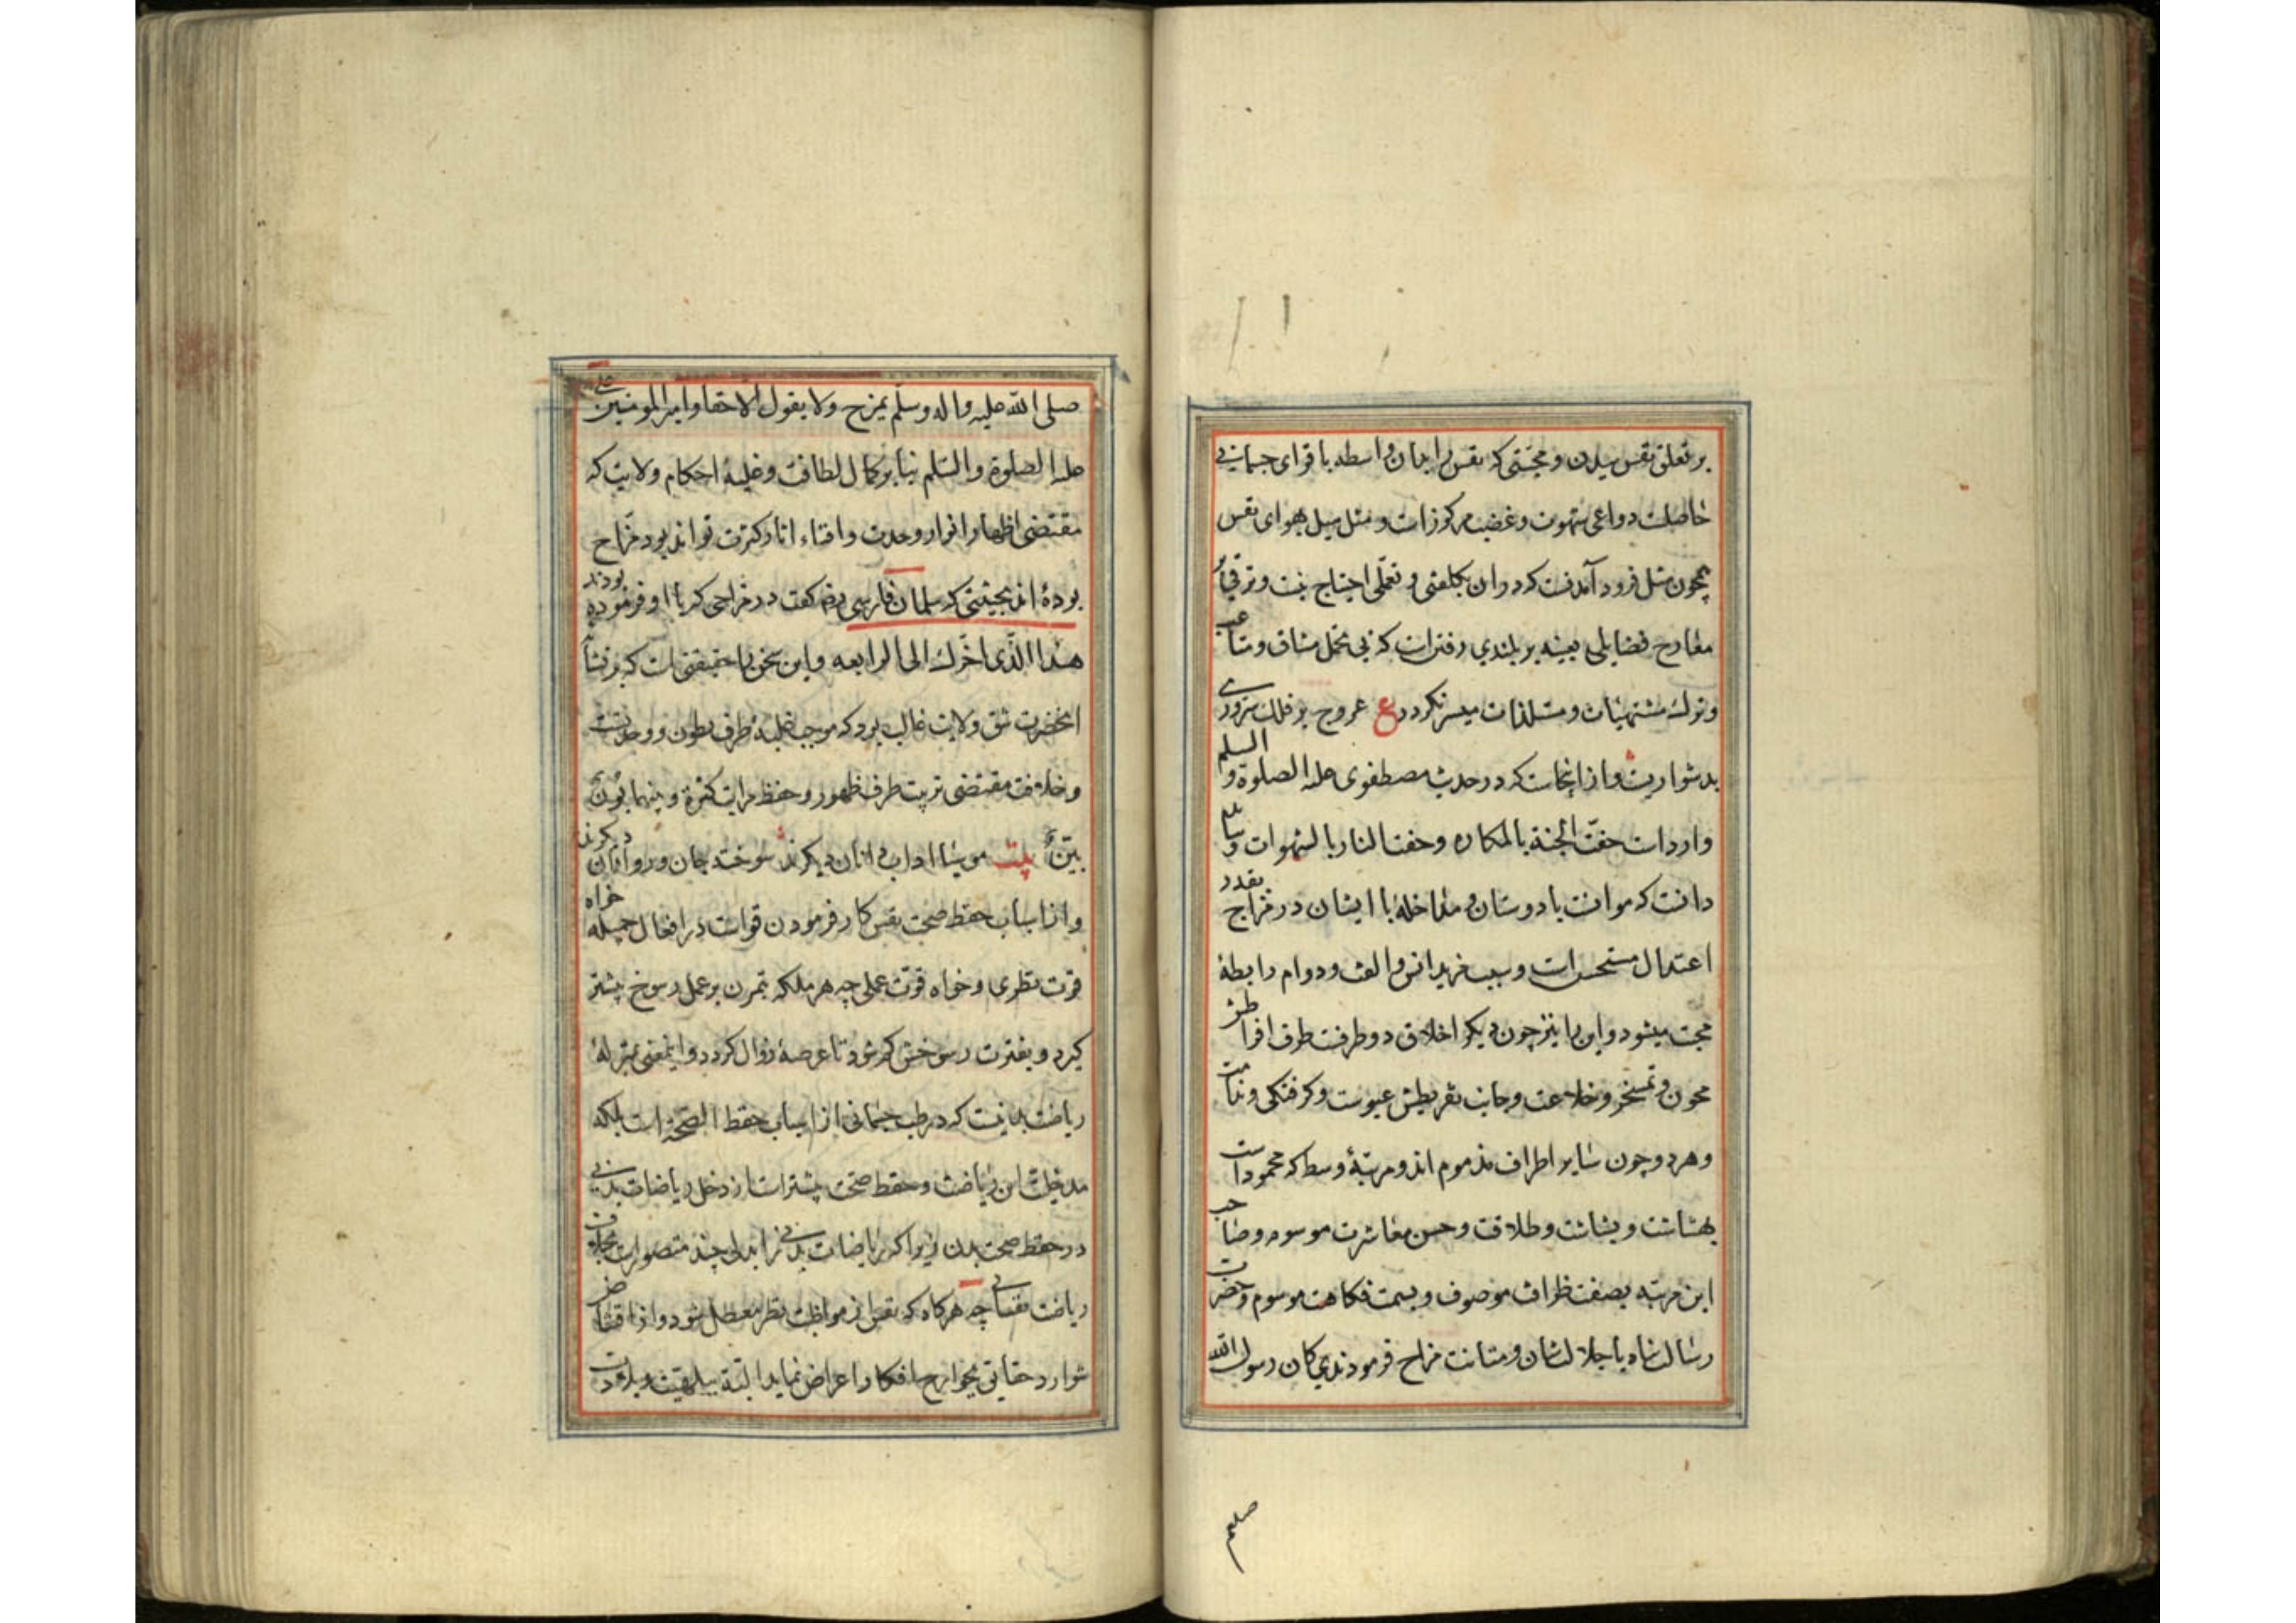 بر تعلق نفس ببدن و محبتی که نفس را بدان واسطه با قوای جسمانی
حاصلست دواعی شهوت و غضب مرکوز است و مثل میل بهوای نفس
همچون مثل فرود آمدنست که در وان بکلفتی و تعملی احتیاج نیست و ترقی بر
معارج فضایلی بعینه بر بلندی رفتن است که بی تحمل مشاق و متاعب
و ترک مشتهیات و مستلذات میسر نکردد ع عروج بر فلک سروری
بدشواریست و از اینجاست که در حدیث مصطفوی علیه الصلوة و السلم
وارد است حفّت الجنة بالمکاره و حفت النار بالشهوات و بباید
دانست که موانست با دوستان و مداخله با ایشان در مزاج بقدر
اعتدال مستحسن است و سبب مزید انس و الفت و دوام رابطهٔ
محبت میشود و این را نیز چون دیکر اخلاق دو طرفست طرف افراطش
مجون و تمسخر و خلاعت و جانب تفریطش عبوست و کرفتکی و
و هر دو چون سایر اطراف مذموم اند و مرتبهٔ وسط که محمود است
بهشاشت و بشاشت و طلاقت و حسن معاشرت موسوم و صاحب
این مرتبه بصفت ظرافت موصوف و بسمت فکاهت موسوم و حضرت
رسالت پناه با جلالت شان و متانت مزاح فرمودندی کان رسول الله
صلعم
صلی الله علیه و اله وسلّم یمزح و لا یقول الّا حقا و امیر المومنین علی
علیه الصلوة و السّلم بنا بر کمال لطافت و غلبهٔ احکام ولایت که
مقتضی اظهار انوار وحدت و افناء اثار کثرت تواند بود مزّاح
بودهٔ اند بحیثیتی که سلمان فارسی رض کفت در مزاحی که با او فرموده بودند
هذا الّذی اخّرک الی الرابعه و این سخن را حقیقتی است که بر نشأ
انحضرت شق ولایت غالب بود که موجب غلبهٔ طرف بطون و وحدتست
و خلافت مقتضی تربیت طرف ظهور و حفظ مراتب کثرة و بینهما بَونٌ
بیّنٌ بیت موسیا اداب دانان دیکرند سوخته جان و روانان دیکرند
و از اسباب حفظ صحت نفس کار فرمودن قواست در افعال جمیله خواه
قوت نظری و خواه قوّت عملی چه هر ملکه بتمرن بر عمل رسوخ بیشتر
کیرد و بفترت رسوخش کم شود تا عرضهٔ زوال کردد و اینمعنی بمنزلهٔ
ریاضت بدنیست که در طب جسمانی از اسباب حفظ الصّحّة است بلکه
مدخلیت این ریاضت در حفظ صحت بیشتر است از دخل ریاضات بدنی
در حفظ صحت بدن زیرا که ریاضات بدنی را بدلی چند متصور است بخلاف
ریاضت نفسانی چه هرکاه که نفس از مواظبت نظر معطل شود و از اقتناص
شوارد حقایق بجوارح افکار اعراض نماید البتّه ببلاهت و بلادت